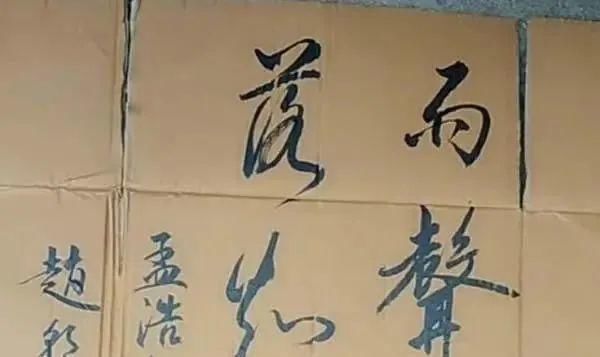 雨聲
落知
孟浩
趙